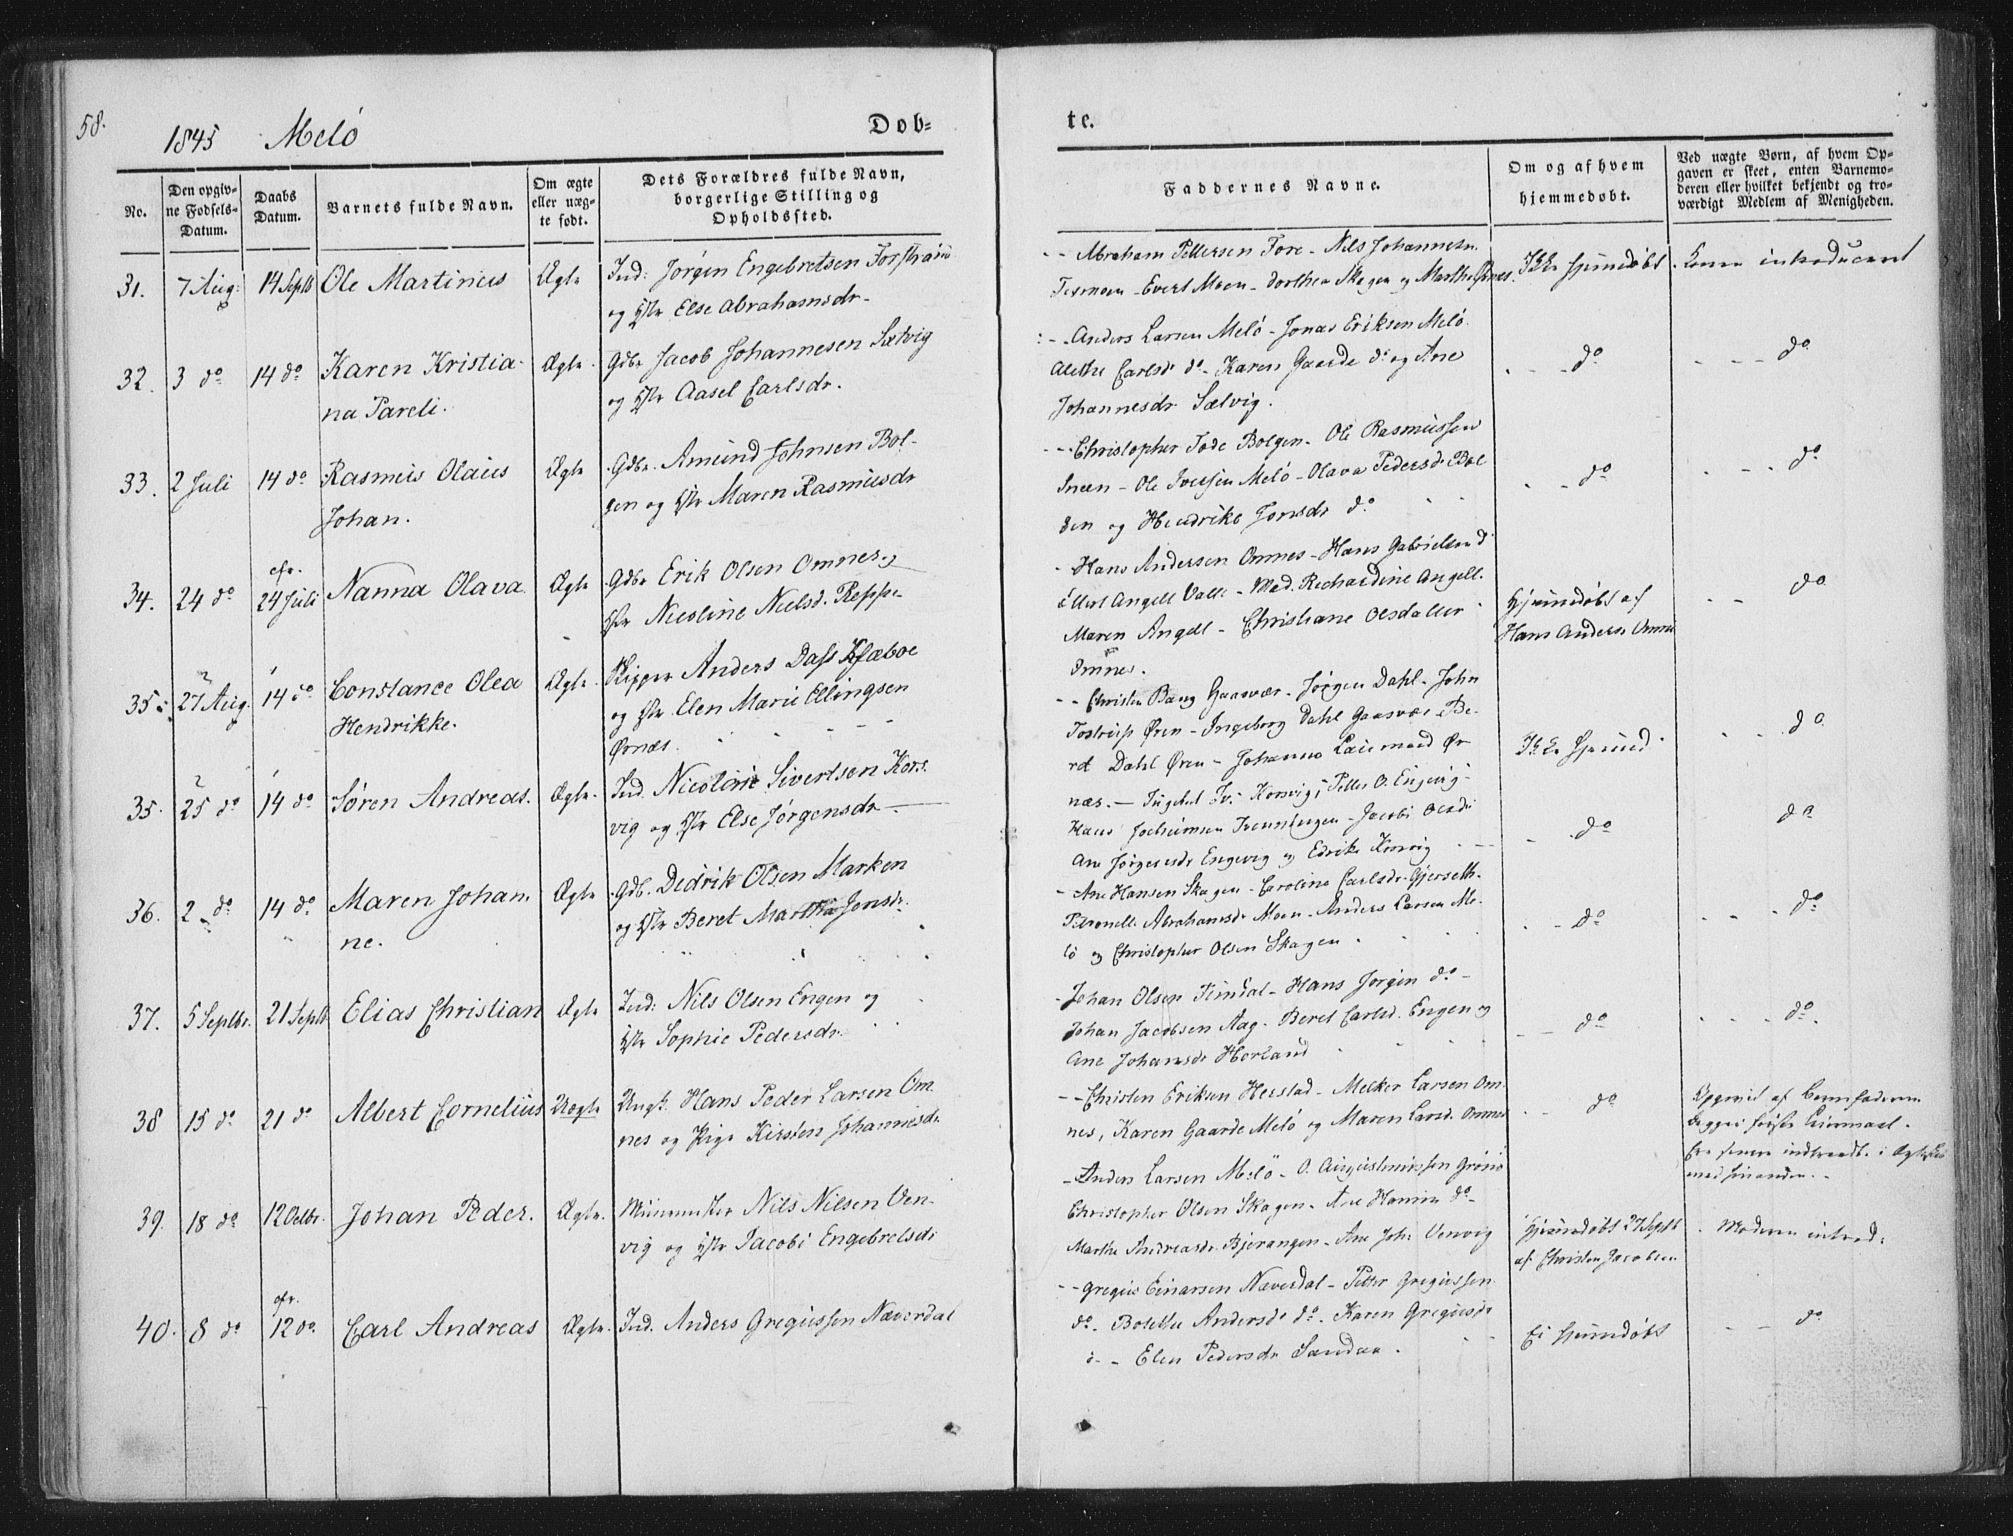 58.
1845 Melö
Döb-
te.
No.
Den opgiv-
ne Fødsels-
Datum.
Daabs
Datum.
Barnets fulde Navn.
Om ægte
eller uæg-
te født.
Dets Forældres fulde Navn,
borgerlige Stilling og
Opholdssted.
Faddernes Navne.
Om og af hvem
hjemmedøbt.
Ved uægte Børn, af hvem Op-
gaven er skeet, enten Barnemo-
deren eller hvilket bekjendt og tro-
værdigt Medlem af Menigheden.
31. 7 Aug: 14 Septb Ole Martinus Ægte Ind: Jørgen Engebretsen
og Hstr Else Abrahamsdr.
Abraham Pettersen Fore - Nils Johannesen
Tesmoen - Evert Moen - Dorthea Skagen og Marthe
Ikke hjemdøbt. Kone introduceret
32. 3 do 14 do Karen Kristia-
na Pareli.
Ægte. Gdbr Jacob Johannesen Selvig
og Hstr Aasel Carlsdr.
Anders Larsen Melö - Jonas Eriksen Melö
Alethe Carlsdr do - Karen Gaarde do og Ane
Johannesdr Selvig.
do
do
33. 2 Juli 14 do Rasmus Olaus
Johan.
Ægte Gdbr. Amund Johnsen Bol-
gen og Hstr Maren Rasmusdr
Christopher Tode Bolgen - Ole Rasmussen
- Ole Iversen Melö - Olava Pedersdr Bol
den og Hendrikke Jonsdr do
do
do
34. 24 do cfr. 24 Juli Nanna Olava Ægte Gdbr Erik Olsen Omnes og
Hstr Nicoline Nielsd. Reppe
Hans Andersen Omnes - Hans Gabrielsen d
Ellert Angell Valle - Mad. Rechardine Angell.
Maren Angell - Christiane Olsdatter
Omnes.
Hjemmedøbt af
Hans Anders. Omnes
do
35. 27 Aug. 14 do Constance Olea
Hendrikke.
Ægte. Skipper Anders Dass Hfæboe
og Hstr. Elen Marie Ellingsen
Ørnæs.
Christen Bang Gaasvær - Jørgen Dahl - John
Tostrup Øren - Ingeborg Dahl Gaasvær - Be-
rit Dahl Øren - Johanna
næs. -
Ikke hjemmed
do
35. 25 do 14 do Søren Andreas. Ægte. Ind. Nicolai Sivertsen Kors-
vig og Hstr Else Jørgensdr
Ingebret Iv: Korsvig, Petter O. Engevig
Hans Jochimsen - Jacobi Olsdr
Ane Jørgensdr Engevig og Edrike Korsvig
do
do
36. 2 do 14 do. Maren Johan-
ne.
Ægte Gdb. Dedrik Olsen Marken
og Hstr Beret Martha Jonsdr.
Ane Hansen Skagen - Caroline Carlsdr. Gjerseth.
Petronelle Abrahamsdr Moen - Anders Larsen Me-
lö og Christopher Olsen Skagen
do
do
37. 5 Septbr. 21 Septb Elias Christian Ægte Ind: Nils Olsen Engen og
Hstr Sophie Pedersdr.
Johan Olsen - Hans Jørgen do -
Johan Jacobsen Aag - Beret Carlsd. Engen og
Ane Johansdr Horland
do
do.
38 15 do 21 do Albert Cornelius Uægte Ungk. Hans Peder Larsen Om-
nes og Pige Kirsten Johannesdr
Christen Eriksen Herstad - Melker Larsen Om-
nes, Karen Gaarde Melö og Maren Larsd. Omnes
do
Opgivet af Barnefaderen
Begges første Leiermaal.
Ere senere indtraadt i Ægtesk.
med hinanden.
39. 18 do 12 Octbr. Johan Peder. Ægte. Nils Nilsen Ven-
vig og Hstr Jacobi Engebretsdr
Anders Larsen Melö - O. Augustinussen Grönö
Christopher Olsen Skagen - Ane do -
Marthe Andreasdr Bjerangen - Ane Joh: Venvig
Hjemmedøbt 27 Septb
af Christen Jacobsen
Moderen introd:
40. 8 do cfr. 12 do Carl Andreas Ægte. Ind. Anders Gregussen Næverdal
Gregus Einarsen Næverdal - Petter Gregussen
do. Botelle Andersdr do. Karen Gregusdr
- Elen Pedersdr Sandaa.
Ei hjemdøbt
do